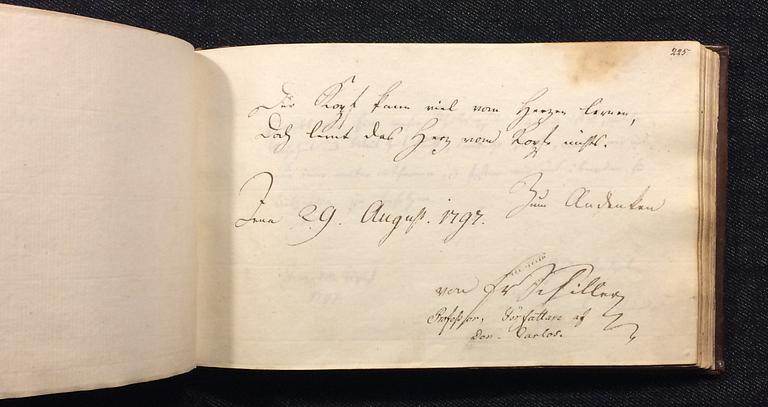 225
Der Kopf kann viel vom Herzen lernen,
Doch lernt das Herz vom Kopfe nichts.
Jena 29. August. 1797.
Zum Andenken
von Fr Schiller
Professor, Författare af
Don Carlos.